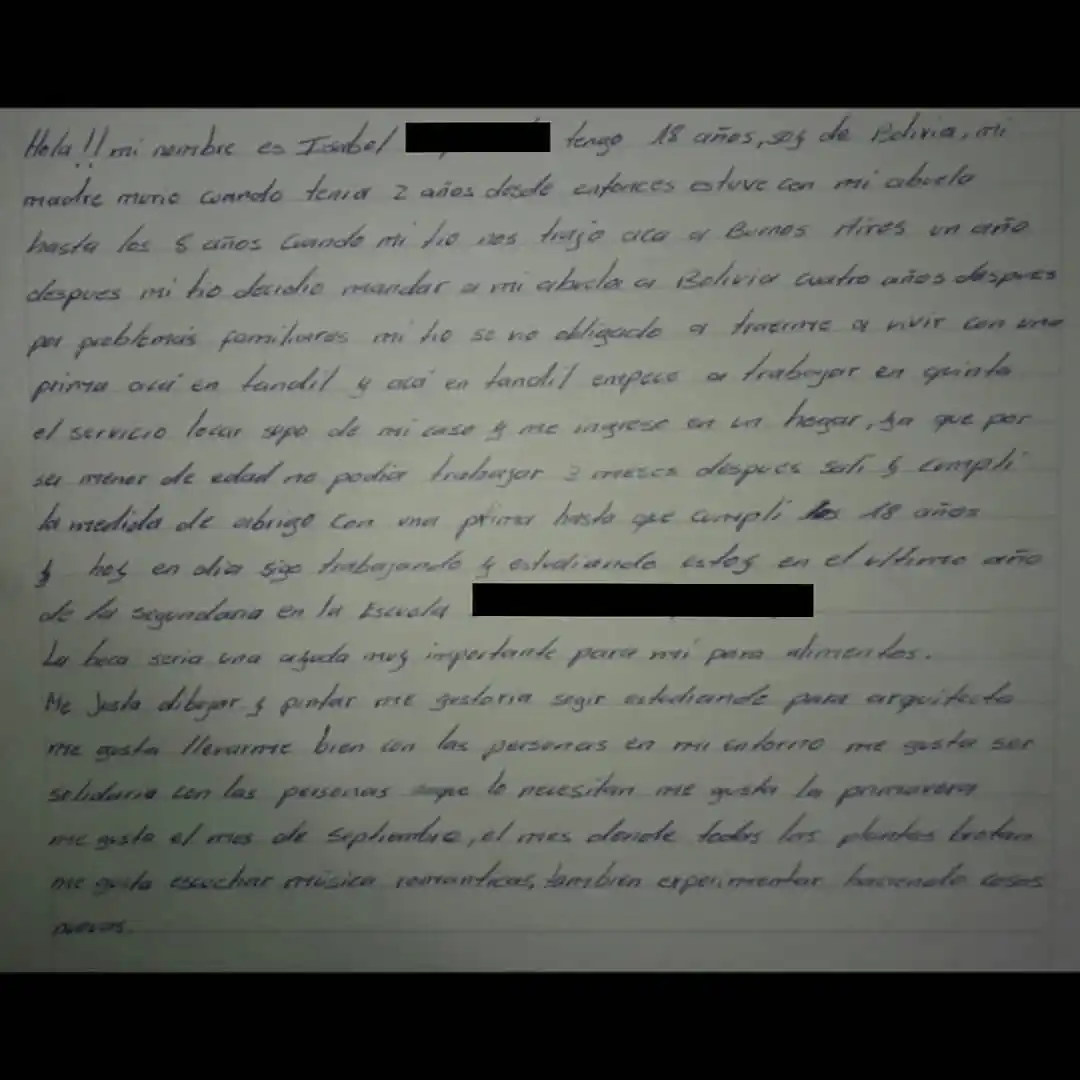 Hola!! mi nombre es Isabel tengo 18 años, soy de Bolivia, mi
madre murio cuando tenia 2 años desde entonces estuve con mi abuela
hasta los 8 años cuando mi tio nos trajo aca a Buenos Aires un año
despues mi tio decidio mandar a mi abuela a Bolivia cuatro años despues
por problemas familiares mi tio se vio obligado a traerme a vivir con una
prima acá en tandil y acá en tandil empece a trabajar en quinta
el servicio locar supo de mi caso y me ingreso en un hogar, ya que por
ser menor de edad no podia trabajar 3 meses despues sali y cumpli
la medida de abrigo con una prima hasta que cumpli los 18 años
y hoy en dia sigo trabajando y estudiando estoy en el ultimo año
de la segundaria en la Escuela
La beca seria una ayuda muy importante para mi para alimentos.
Me justa dibujar y pintar me gustaria segir estudiando para arquitecta
me gusta llevarme bien con las personas en mi entorno me gusta ser
solidaria con las personas que lo necesitan me gusta la primavera
me gusta el mes de septiembre, el mes donde todas las plantas brotan
me gusta escuchar música romanticas, tambien experimentar haciendo cosas
nuevas.